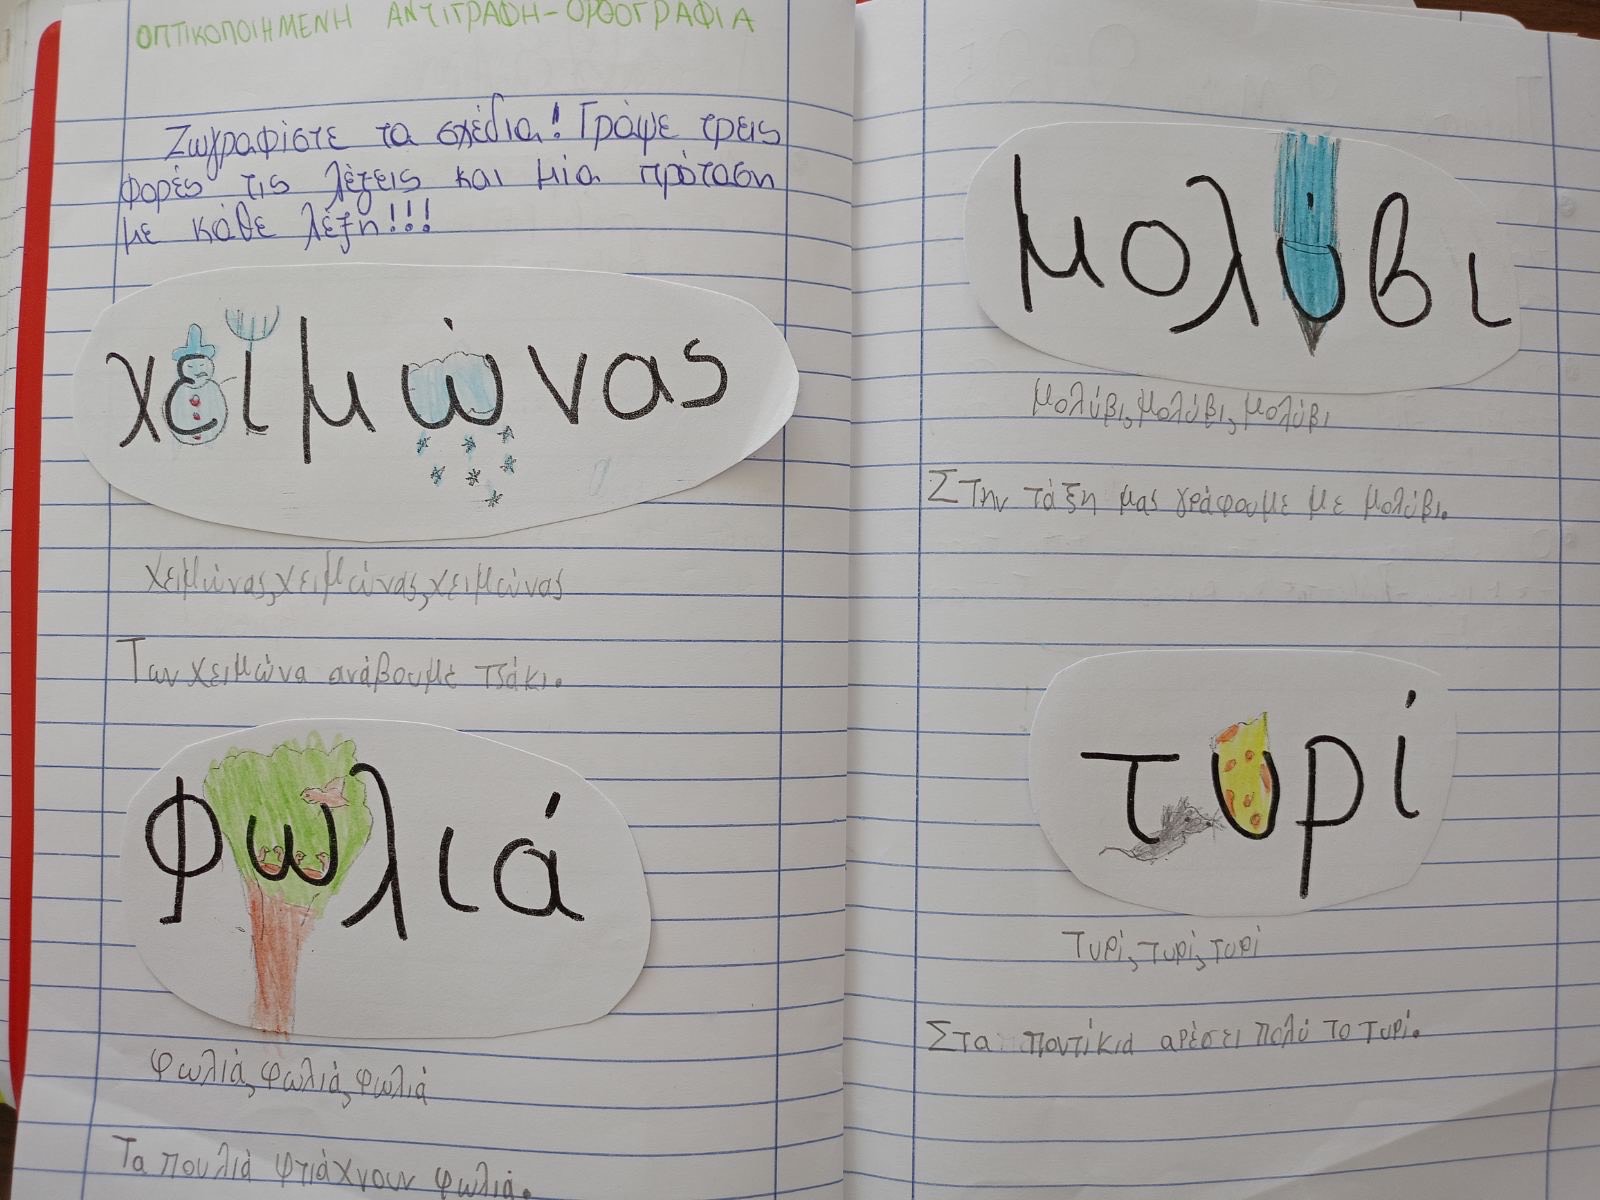 ΟΠΤΙΚΟΠΟΙΗΜΕΝΗ ΑΝΤΙΓΡΑΦΗ-ΟΡΘΟΓΡΑΦΙΑ
Ζωγραφίστε τα σχέδια! Γράψε τρεις
φορές τις λέξεις και μία πρόταση
με κάθε λέξη!!!
χειμώνας
χειμώνας, χειμώνας, χειμώνας
Των χειμώνα ανάβουμε τζάκι.
φωλιά
φωλιά, φωλιά, φωλιά
Τα πουλιά φτιάχνουν φωλιά.
μολύβι
μολύβι, μολύβι, μολύβι
Στην τάξη μας γράφουμε με μολύβι.
τυρί
τυρί, τυρί, τυρί
Στα ποντίκια αρέσει πολύ το τυρί.